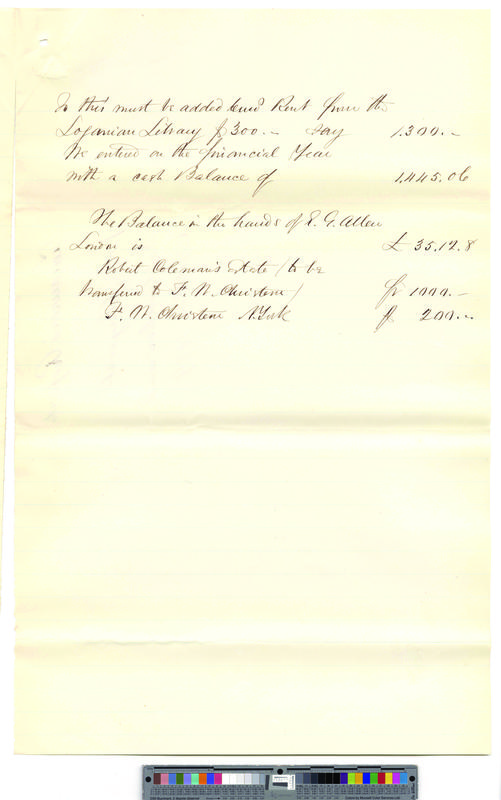 To this must be added Rent from the
Loganian Library $300.— Say 1.300.—
We entered on the financial Year
with a cash Balance of 1,445.06
The Balance in the hands of E. G. Allen
London is £ 35.12.8
Robert Coleman's Estate (to be
transferred to F. W. Christern) fr 1000.—
F. W. Christern N. York $ 200.—